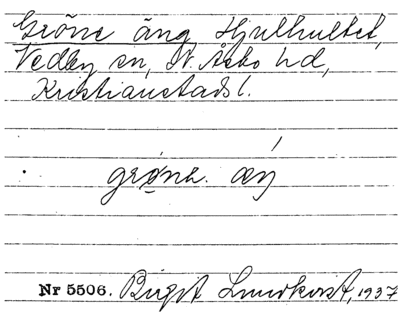 Gröne äng, Hjulhultet,
Vedby sn, N. Åsbo hd,
Kristianstads l.
grønə. æŋ
Nr 5506. Birgit Lundkvist, 1937